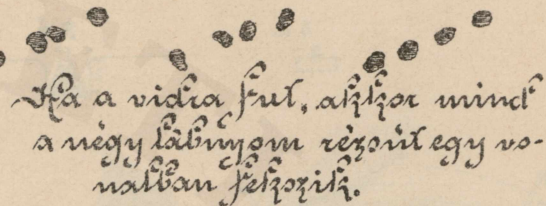 Ha a vidra fut, akkor mind
a négy lábnyom rézsút egy vo-
nalban fekszik.